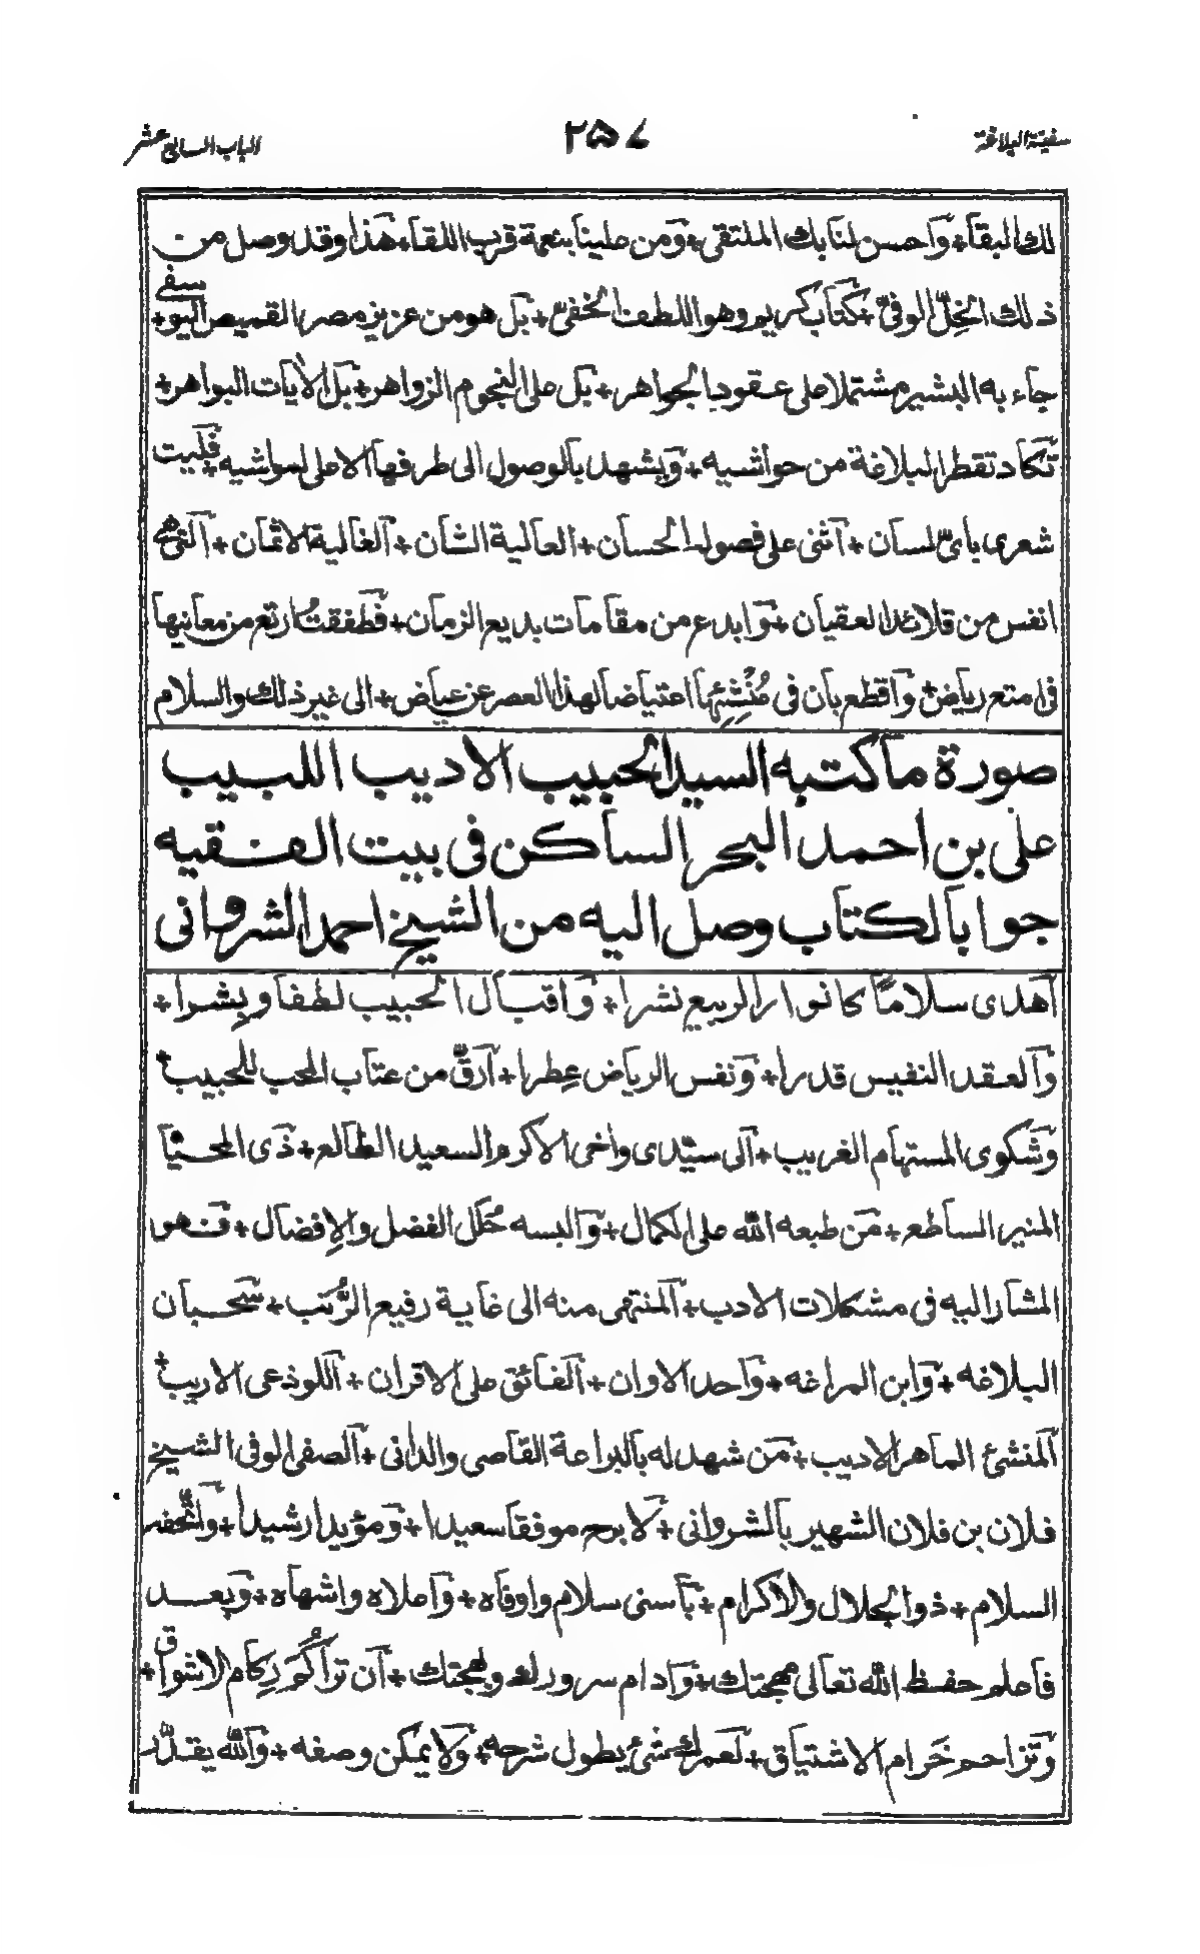 سفينة البلاغة
٢٥٧
الباب السابع عشر
لك البقا+ وَاحسن لنا بك الملتقى+ وَمن علينا بنعمة قرب اللقا+ هَذا وقد وصل من
ذلك الخِلّ الوفىّ+ كتاب كريم وهو اللطف الخفىّ+ بَل هو من عزيز مصر القميص اليوسفى+
جاء به البشير مشتملا على عقود الجواهر+ بَل على النجوم الزواهر+ بَل الأيات البواهر+
تكاد تقطر البلاغة من حواشيه+ وَيشهد بالوصول الى طرفها الاعلى لمواشيه+ فَليت
شعرى باىّ لسان+ اَثنى على فصوله الحسان+ العالية الشان+ اَلغالية الاثمان+ اَلتى هى
انفس من قلائد العقيان+ وَابدع من مقامات بديع الزمان+ فَطفقتُ ارتع من معانيها
فى امتع رياض+ وَاقطع بان فى مُنْشِئِها اعتياضا لهذا العصر عن عياض+ الى غير ذلك والسلام
صورة ما كتبه السيد الحبيب الاديب اللبيب
على بن احمد البحر الساكن فى بيت الفقيه
جوابا لكتاب وصل اليه من الشيخ احمد الشروانى
اَهدى سلامًا كانوار الربيع نشرا+ وَاقبال الحبيب لطفا وبِشرا+
وَالعقد النفيس قدرا+ وَنفس الرياض عِطرا+ اَرقّ من عتاب المحب للحبيب+
وَشكوى المستهام الغريب+ اَلى سيّدى واخى الاكرم السعيد الطالع+ ذَى المحيّا
المنير الساطع+ مَن طبعه الله على الكمال+ وَالبسه حُلَل الفضل والاِفضال+ فهو
المشار اليه فى مشكلات الادب+ اَلمنتهى منه الى غاية رفيع الرُّتب+ سَحبان
البلاغه+ وَابن المراغه+ وَاحد الاوان+ اَلفائق على الاقران+ اَللوذعى الاريب+
اَلمنشئ الماهر الاديب+ مَن شهد له بالبراعة القاصى والدانى+ اَلصفى الوفى الشيخ
فلان بن فلان الشهير بالشروانى+ لَا برح موفقا سعيدا+ وَمؤيدا رشيدا+ وَاَتحفه
السلام+ ذو الجلال والاكرام+ بَاسنى سلام واوفاه+ وَاعلاه واشهاه+ وَبعد
فاعلم حفظ الله تعالى مهجتك+ وَادام سرورك وبهجتك+ اَن تراكُمَ رِكام الاشواق+
وَتزاحم خَرام الاشتياق+ لَعمرك شئ يطول شرحه+ وَلا يمكن وصفه+ وَالله يقدّر